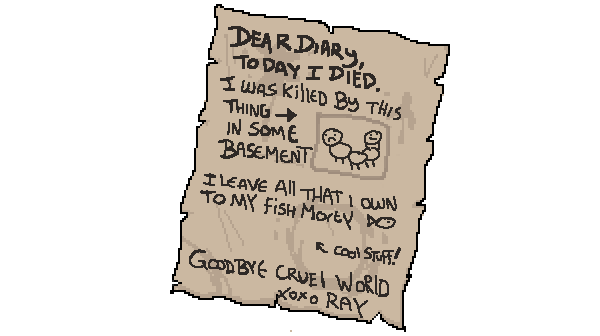 DEAR DIARY,
TODAY I DIED.
I WAS KillED BY THIS
THING →
IN SOME
BASEMENT
I LEAVE All THAT I OWN
TO MY FiSH MOREY
↖ COOl STUFF!
GOODBYE CRUEl WORlD
XOXO RAY